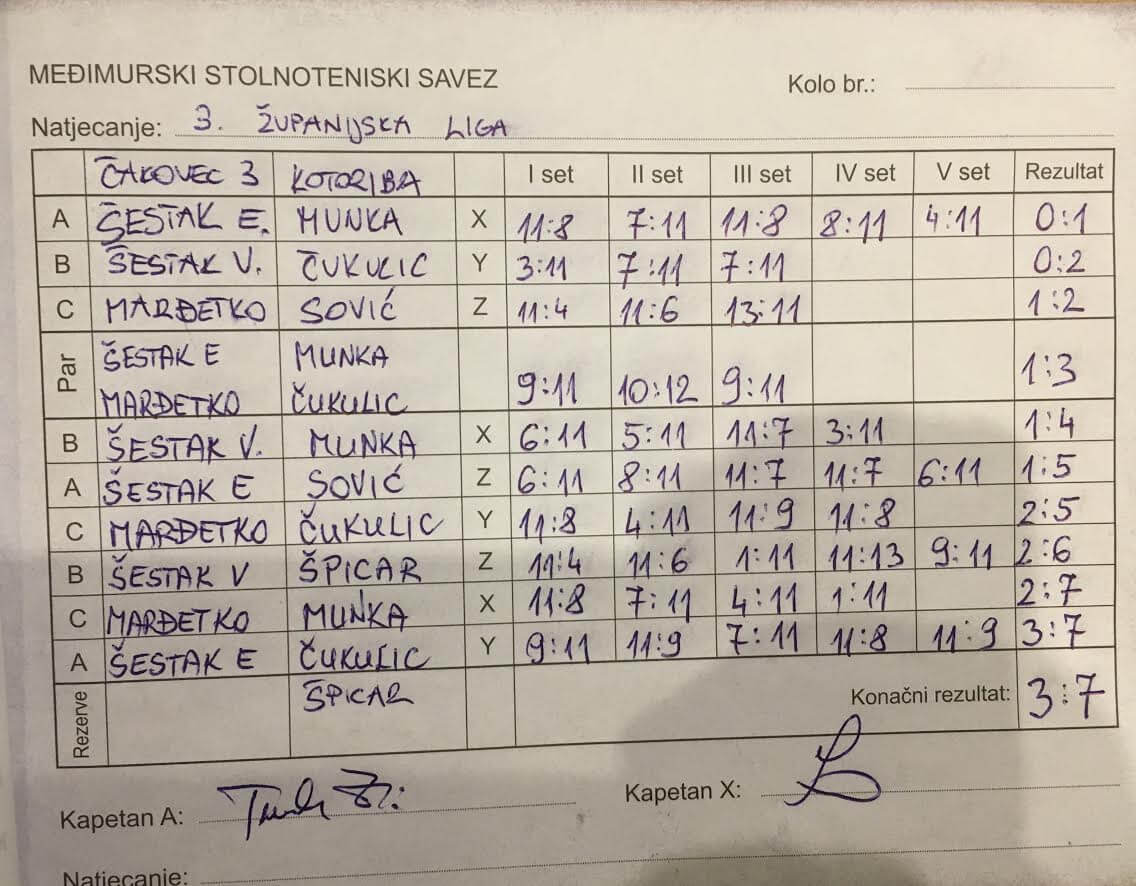 MEĐIMURSKI STOLNOTENISKI SAVEZ
Kolo br.:
Natjecanje: 3. ŽUPANIJSKA LIGA
ČAKOVEC 3 KOTORIBA I set II set III set IV set V set Rezultat
A ŠESTAK E. MUNKA X 11:8 7:11 11:8 8:11 4:11 0:1
B ŠESTAK V. ČUKULIC Y 3:11 7:11 7:11 0:2
C MARĐETKO SOVIĆ Z 11:4 11:6 13:11 1:2
Par ŠESTAK E MUNKA
MARĐETKO ČUKULIC 9:11 10:12 9:11 1:3
B ŠESTAK V. MUNKA X 6:11 5:11 11:7 3:11 1:4
A ŠESTAK E SOVIĆ Z 6:11 8:11 11:7 11:7 6:11 1:5
C MARĐETKO ČUKULIC Y 11:8 4:11 11:9 11:8 2:5
B ŠESTAK V ŠPICAR Z 11:4 11:6 1:11 11:13 9:11 2:6
C MARĐETKO MUNKA X 11:8 7:11 4:11 1:11 2:7
A ŠESTAK E ČUKULIC Y 9:11 11:9 7:11 11:8 11:9 3:7
Rezerve ŠPICAR Konačni rezultat: 3:7
Kapetan A: Kapetan X:
Natjecanje: